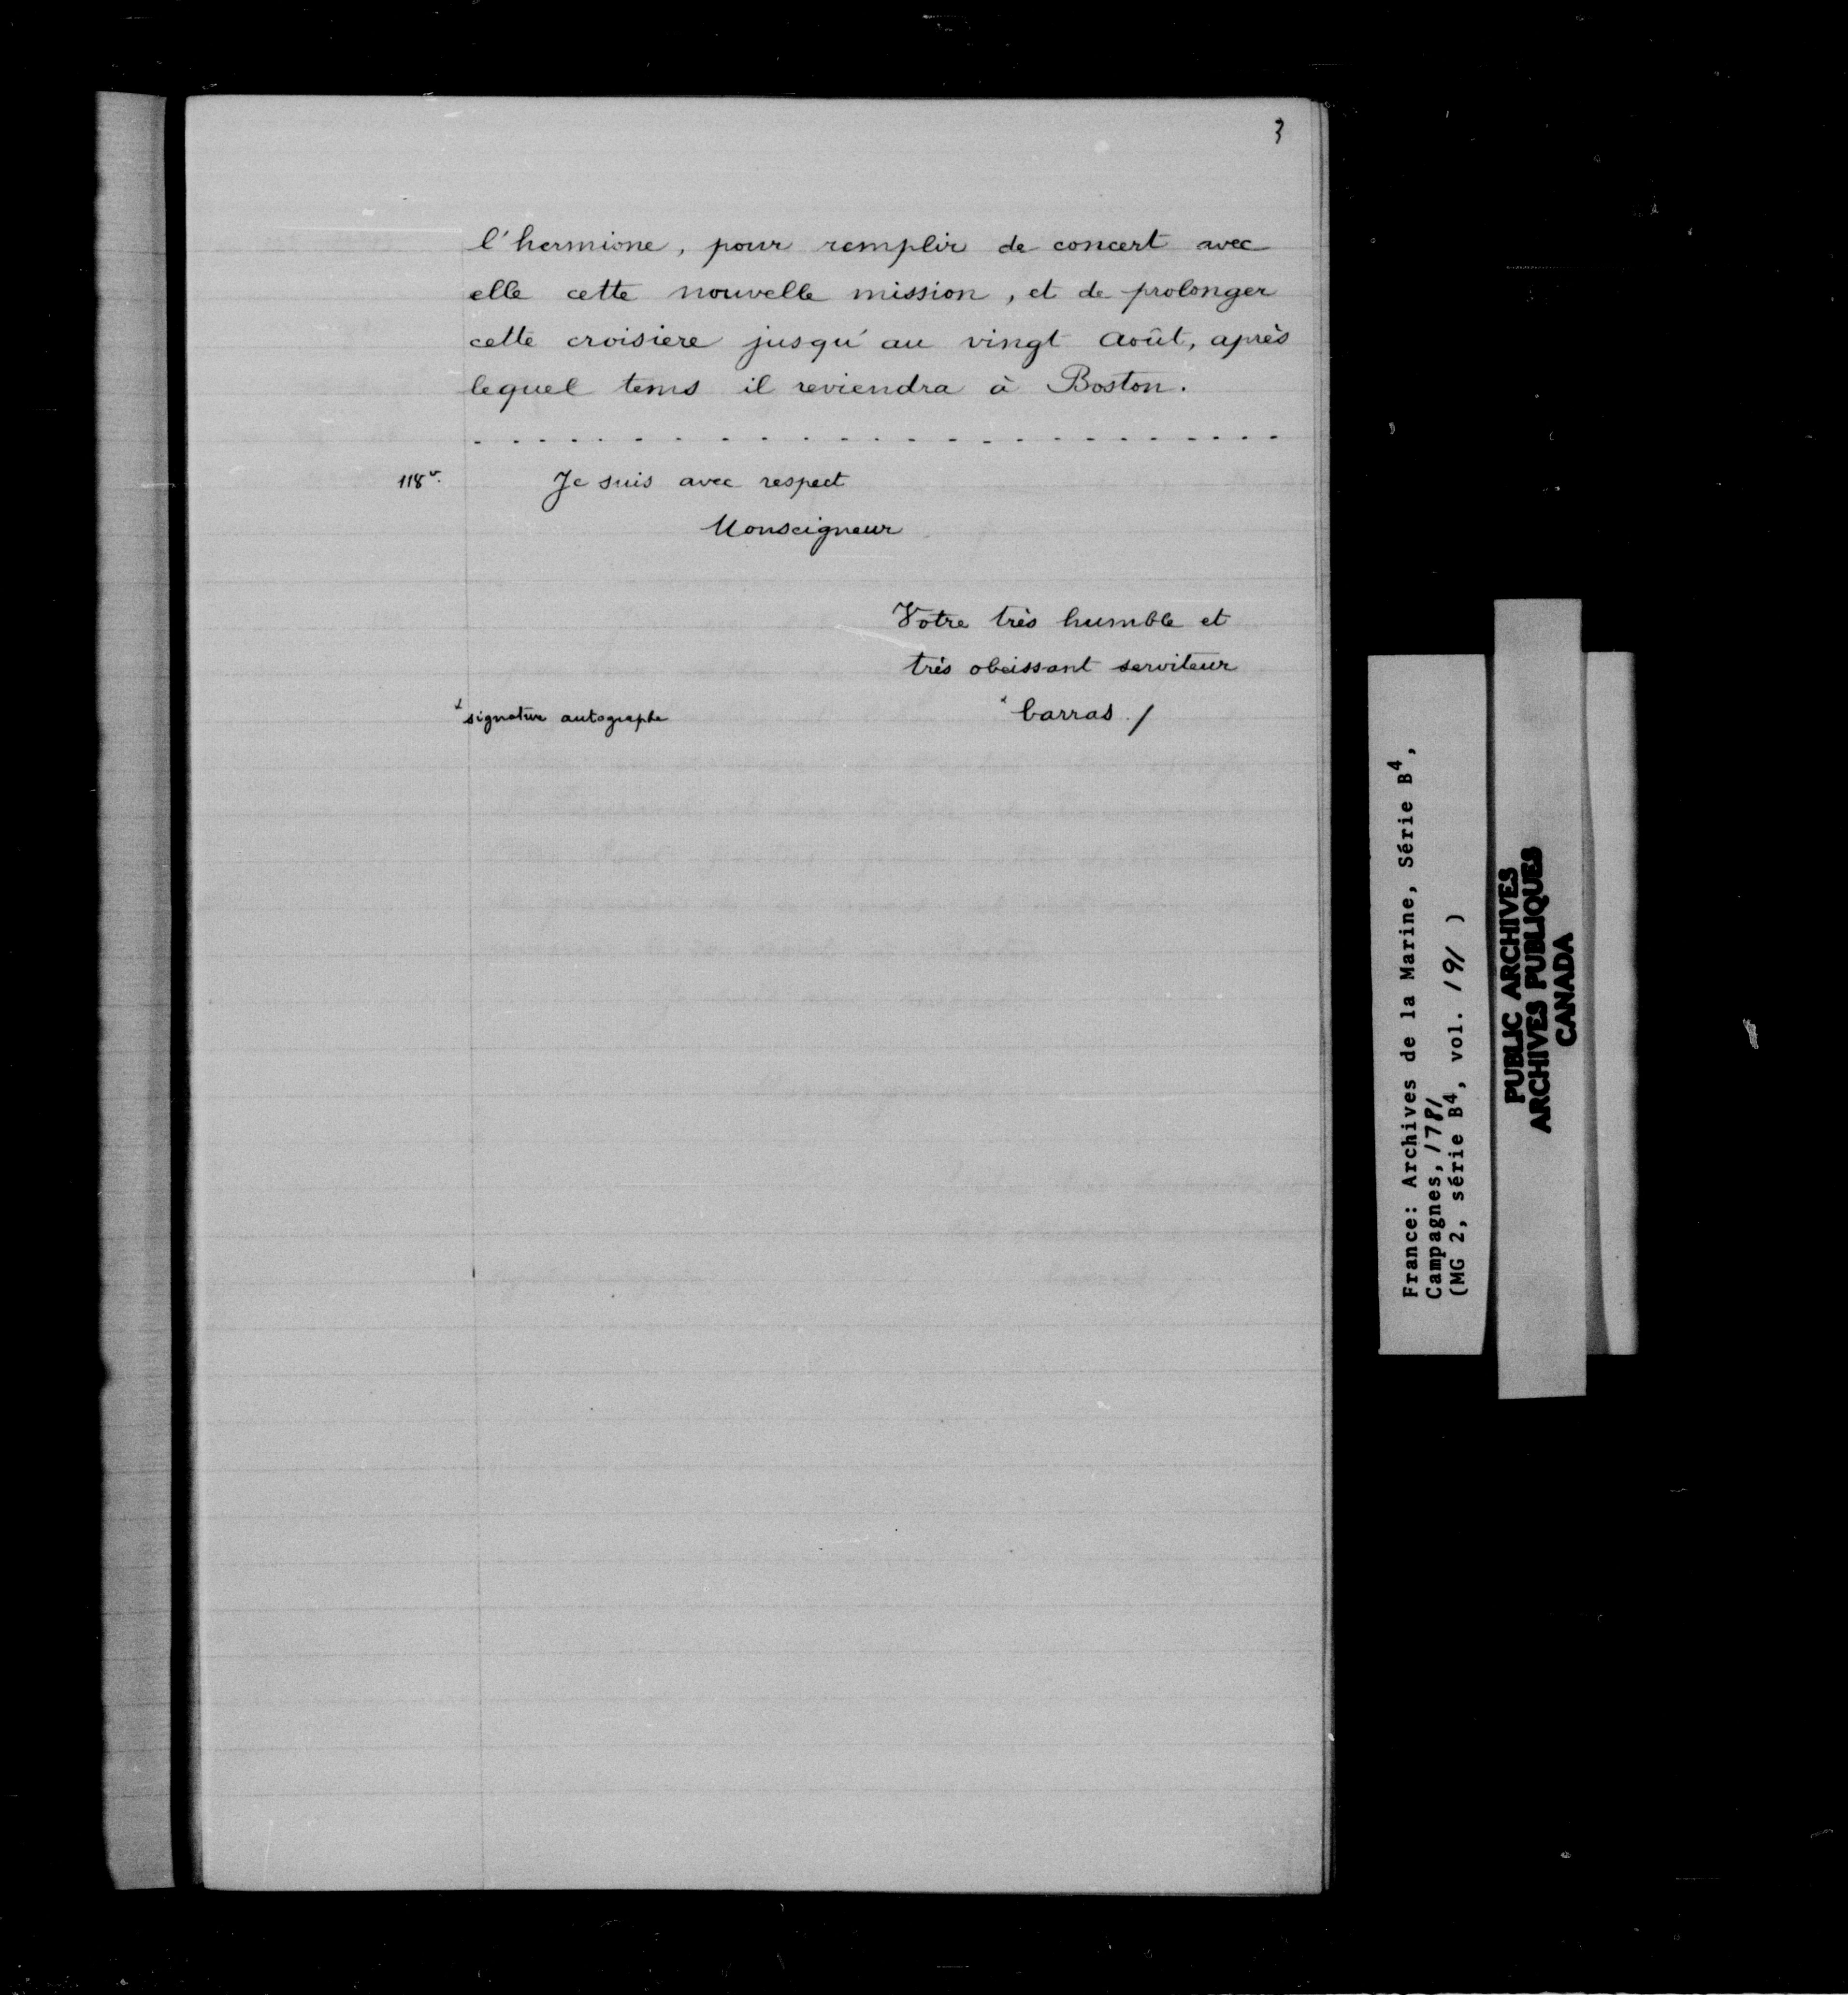 3
l'hermione, pour remplir de concert avec
elle cette nouvelle mission, et de prolonger
cette croisiere jusqu'au vingt août, après
lequel tems il reviendra à Boston.
. . . . . . . . . . . . . . . . . . . . . .
118v. Je suis avec respect
Monseigneur
Votre très humble et
très obeissant serviteur
x signature autographe x barras /
France: Archives de la Marine, Série B4,
Campagnes, 1781
(MG 2, série B4, vol. 191 )
PUBLIC ARCHIVES
ARCHIVES PUBLIQUES
CANADA